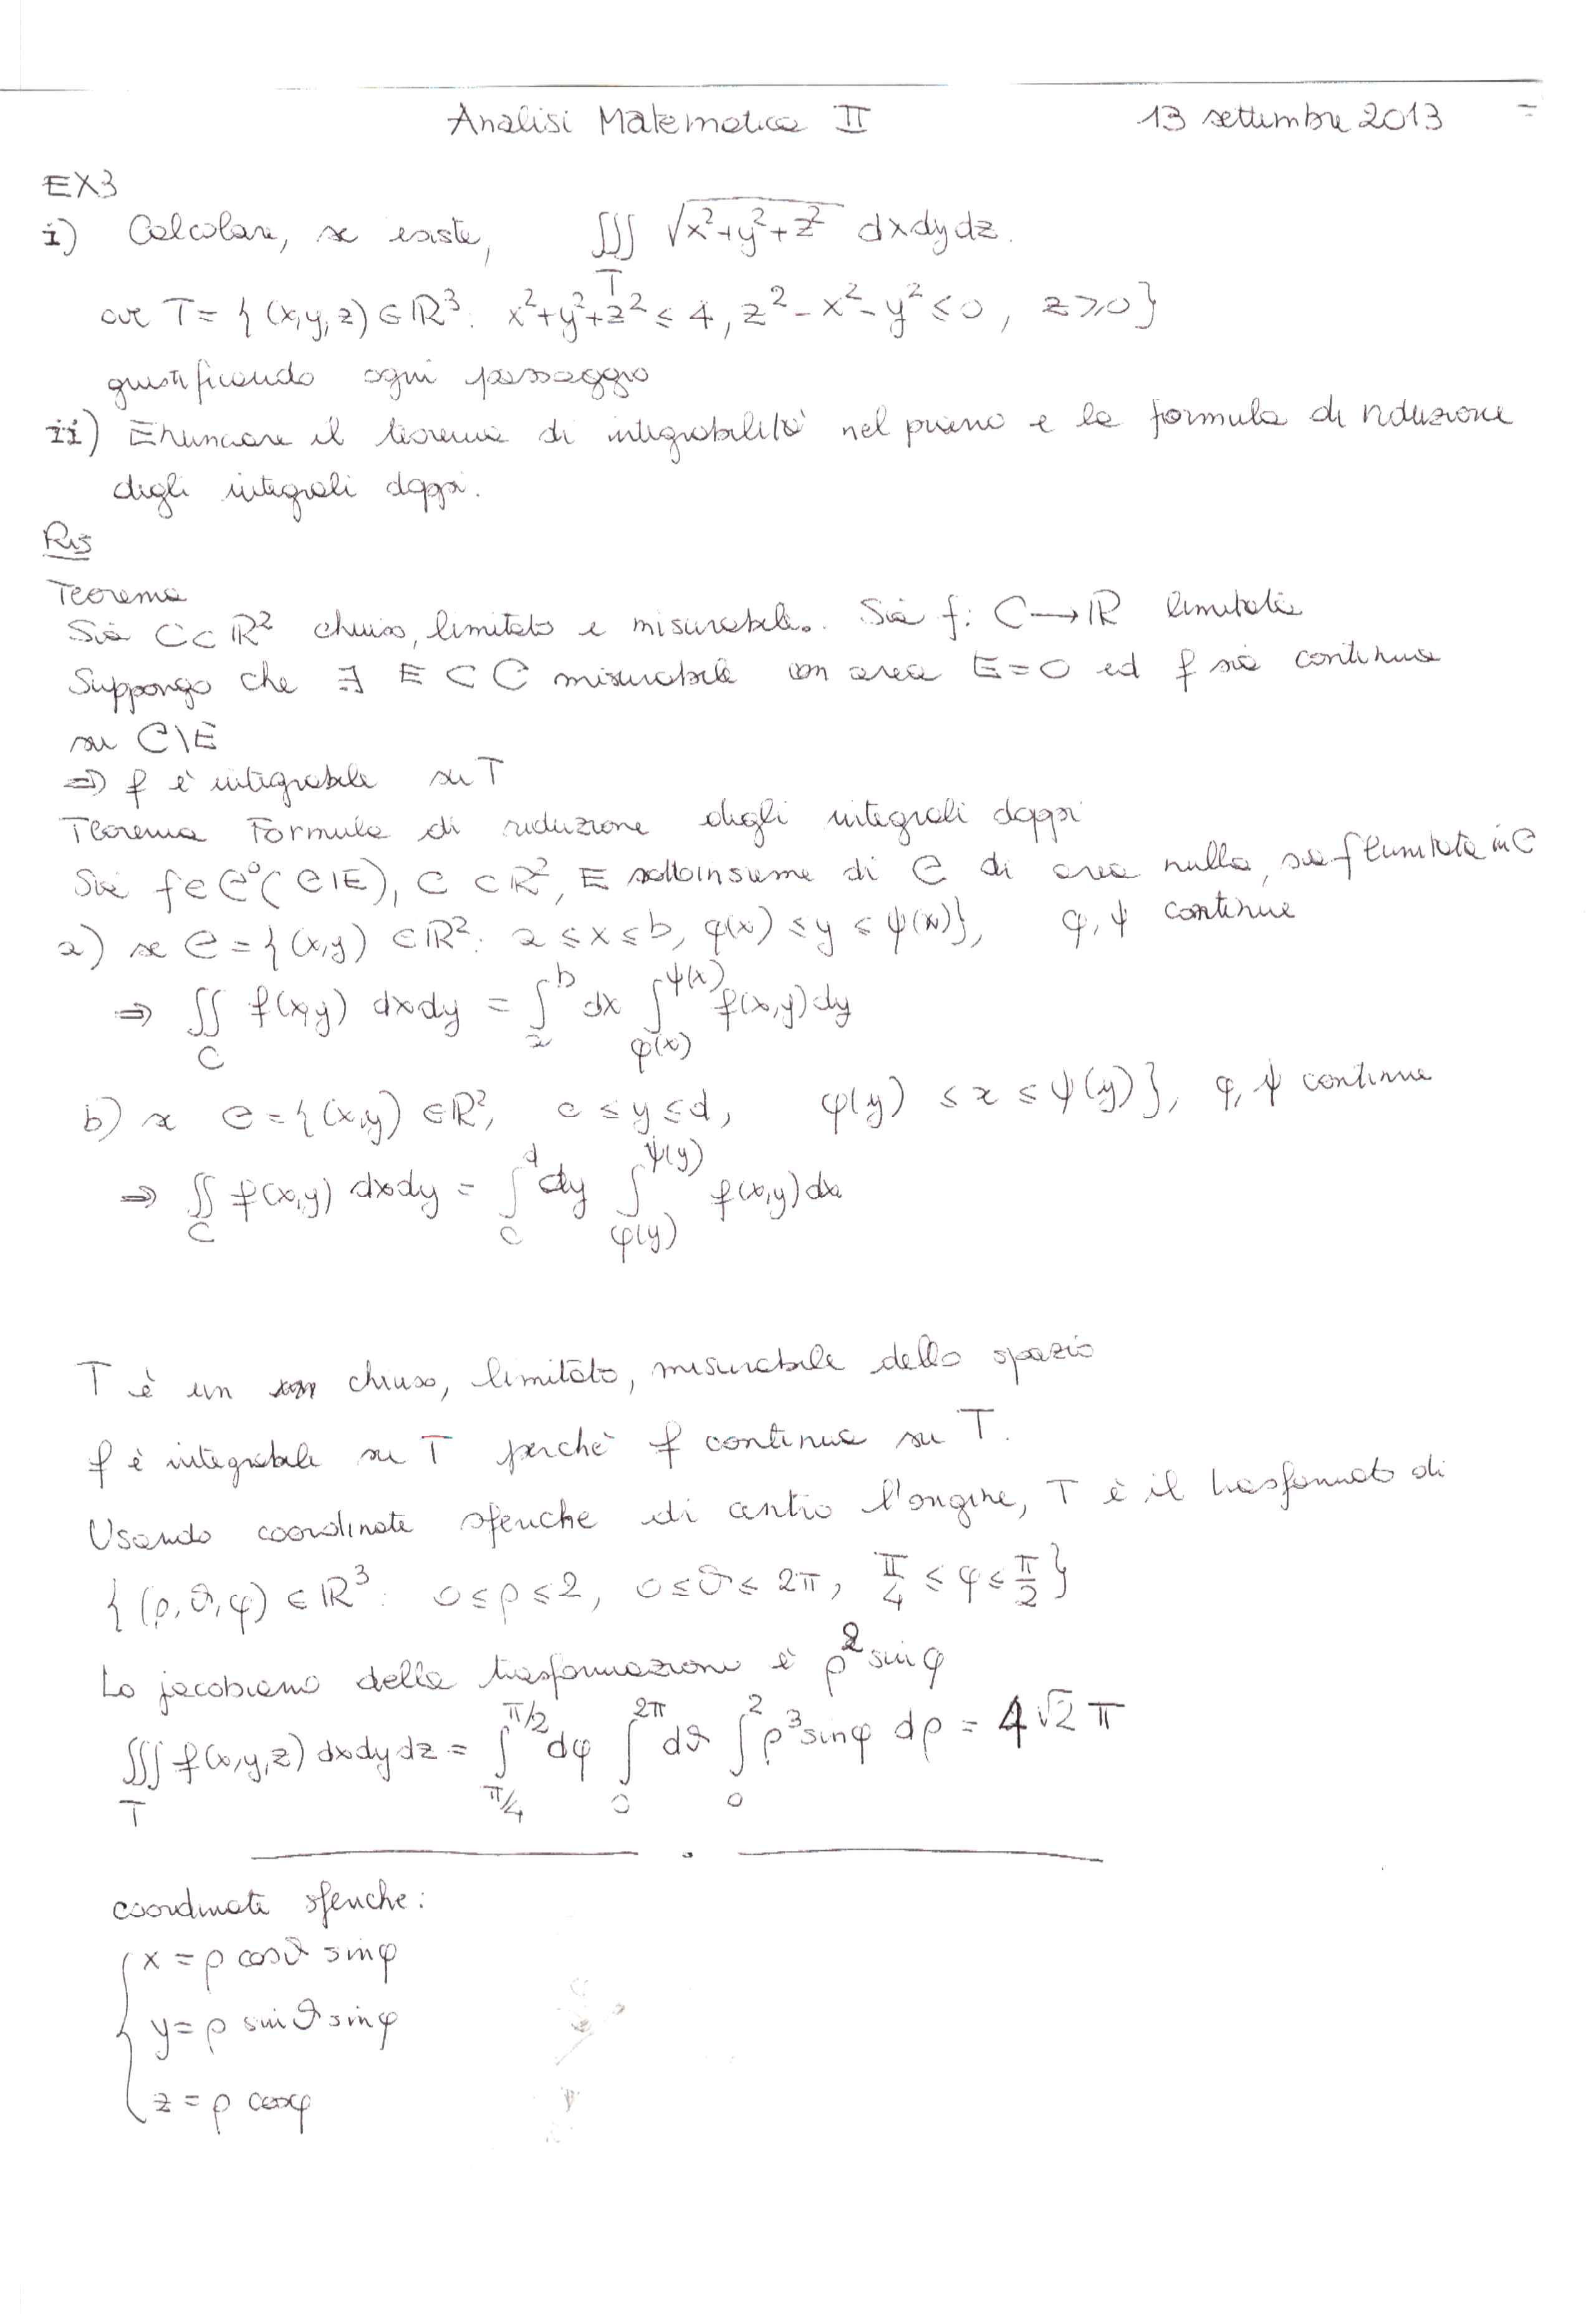 Analisi Matematica II 13 settembre 2013 =
EX3
i) Calcolare, se esiste, ∭_T √(x²+y²+z²) dxdydz.
ove T = { (x,y,z) ∈ ℝ³: x²+y²+z² ≤ 4, z²-x²-y² ≤ 0, z ≥ 0 }
giustificando ogni passaggio
ii) Enunciare il teorema di integrabilità nel piano e la formula di riduzione
degli integrali doppi.
Ris
Teorema
Sia C ⊂ ℝ² chiuso, limitato e misurabile. Sia f: C → ℝ limitata
Suppongo che ∃ E ⊂ C misurabile con area E=0 ed f sia continua
su C\E
⇒ f è integrabile su T
Teorema Formula di riduzione degli integrali doppi
Sia f ∈ C⁰(C\E), C ⊂ ℝ², E sottoinsieme di C di area nulla, sia f limitata in C
a) se C = { (x,y) ∈ ℝ²: a ≤ x ≤ b, φ(x) ≤ y ≤ ψ(x) }, φ, ψ continue
⇒ ∬_C f(x,y) dxdy = ∫_a^b dx ∫_φ(x)^ψ(x) f(x,y) dy
b) se C = { (x,y) ∈ ℝ², c ≤ y ≤ d, φ(y) ≤ x ≤ ψ(y) }, φ, ψ continue
⇒ ∬_C f(x,y) dxdy = ∫_c^d dy ∫_φ(y)^ψ(y) f(x,y) dx
T è un chiuso, limitato, misurabile dello spazio
f è integrabile su T perchè f continua su T.
Usando coordinate sferiche di centro l'origine, T è il trasformato di
{ (ρ,ϑ,φ) ∈ ℝ³: 0 ≤ ρ ≤ 2, 0 ≤ ϑ ≤ 2π, π/4 ≤ φ ≤ π/2 }
Lo jacobiano della trasformazione è ρ² sinφ
∭_T f(x,y,z) dxdydz = ∫_π/4^π/2 dφ ∫_0^2π dϑ ∫_0^2 ρ³ sinφ dρ = 4√2 π
coordinate sferiche:
{ x = ρ cosϑ sinφ
y = ρ sinϑ sinφ
z = ρ cosφ